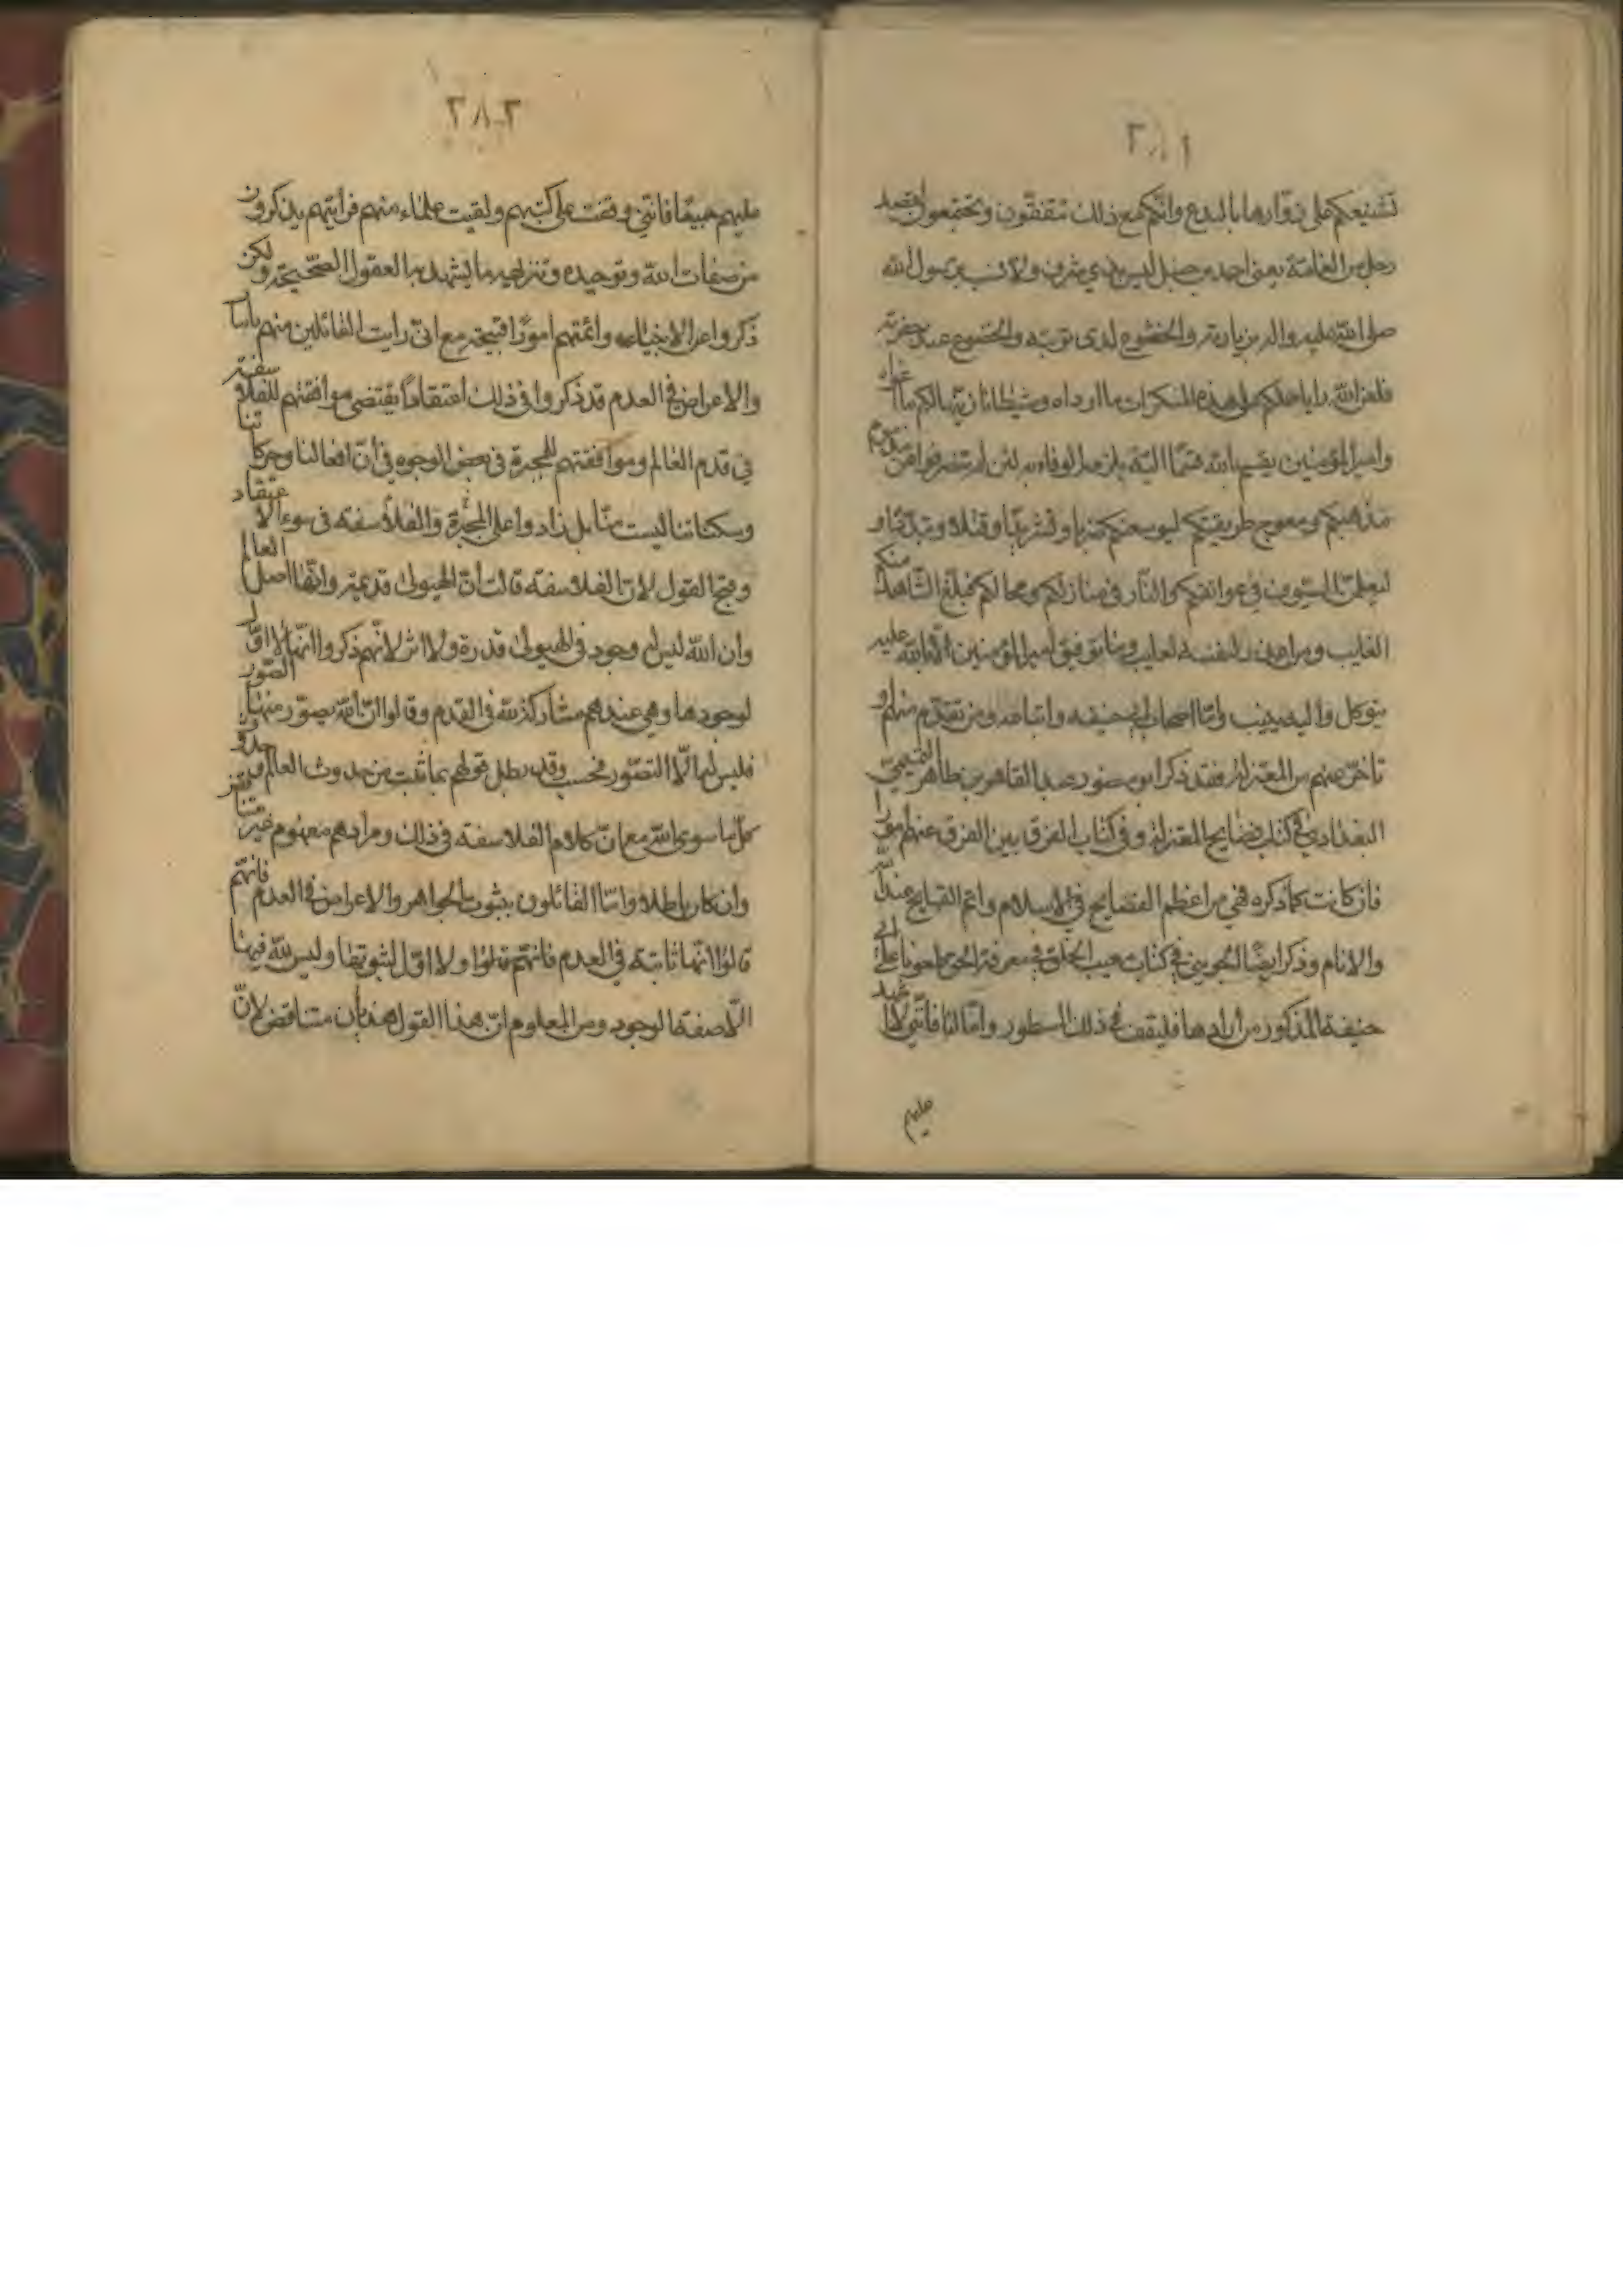 تشنیعکم علی زوّارها بالبدع وانکم مع ذلك تتفقون وتجتمعون لقصد
رجل من العامّة یعنی احمد بن حنبل لیس بذی شرف ولا نسب برسول الله
صلی الله علیه واله بزیارته والخشوع لدی تربته والخضوع عند حفرته
فلعن الله رایا حملکم علی هذه المنکرات ما ارداه وشیطانا زیّنها لکم ما اغواه
وامیر المؤمنین یقسم بالله قسما الیّة یلزمه الوفاء به لئن لم تنصرفوا عن مذموم
مذهبکم ومعوج طریقتکم لیوسعنکم ضربا وتشریدا وقتلا وتبدیدا و
لیعملن السیوف فی عواتقکم والنار فی منازلکم ومحالکم فیبلغ الشاهد منکم
الغایب ومن اعذر لنفسه وما توفیق امیر المؤمنین الا بالله علیه
یتوکل والیه ینیب وامّا اصحاب ابی حنیفه واتباعه ومن تقدم منهم و
تاخّر عنهم من المعتزلة فقد ذکر ابو منصور عبد القاهر بن طاهر التمیمی
البغدادی فی کتاب فضایح المعتزلة وفی کتاب الفرق بین الفرق عنهم امورا
فان کانت کما ذکره فهی من اعظم الفضایح فی الاسلام واتم القبایح عند الله
والانام وذکر ایضا الجوینی فی کتاب مغیث الخلق فی معرفة الحق عیوبا علی ابی
حنیفة المذکور من ارادها فلیقف فی ذلك المسطور وامّا انا فاننی لا اعیب
علیهم
٣٨٢
علیهم جمیعا فاننی وقفت علی کتبهم ولقیت علماء منهم فرایتهم یذکرون
من صفات الله وتوحیده وتنزیهه ما یشهد به العقول الصحیحة ولکن
ذکروا عن الانبیاء وائمّتهم امورا قبیحة مع انی رایت القائلین منهم باثبات
والاعراض فی العدم قد ذکروا فی ذلك اعتقادا یقتضی موافقتهم للفلاسفة
فی قدم العالم وموافقتهم للمجبرة فی بعض الوجوه فی أنّ افعالنا وحرکاتنا
وسکناتنا لیست منّا بل زادوا علی المجبّرة والفلاسفة فی سوء الاعتقاد
وقبح القول لانّ الفلاسفة قالت أنّ الهیولی قدیمة وانّها اصل العالم
وان الله لیس له فی وجود الهیولی قدرة ولا اثر لانّهم ذکروا انّها لا اوّل
لوجودها وهی عندهم مشارکة لله فی القدم وقالوا انّ الله یصوّر منها الصّور
فلیس له الّا التصوّر فحسب وقد بطل قولهم بما ثبت من حدوث العالم وحدوث
کلّ ما سوی الله مع انّ کلام الفلاسفة فی ذلك ومرادهم مفهوم غیر متناقض
وان کان باطلا وامّا القائلون بثبوت الجواهر والاعراض فی العدم فانهّم
قالوا انّها ثابتة فی العدم فانّهم قالوا ولا اوّل لثبوتها ولیس لله فیها
الّا صفة الوجود ومن المعلوم انّ هذا القول هذیان متناقض لانّ